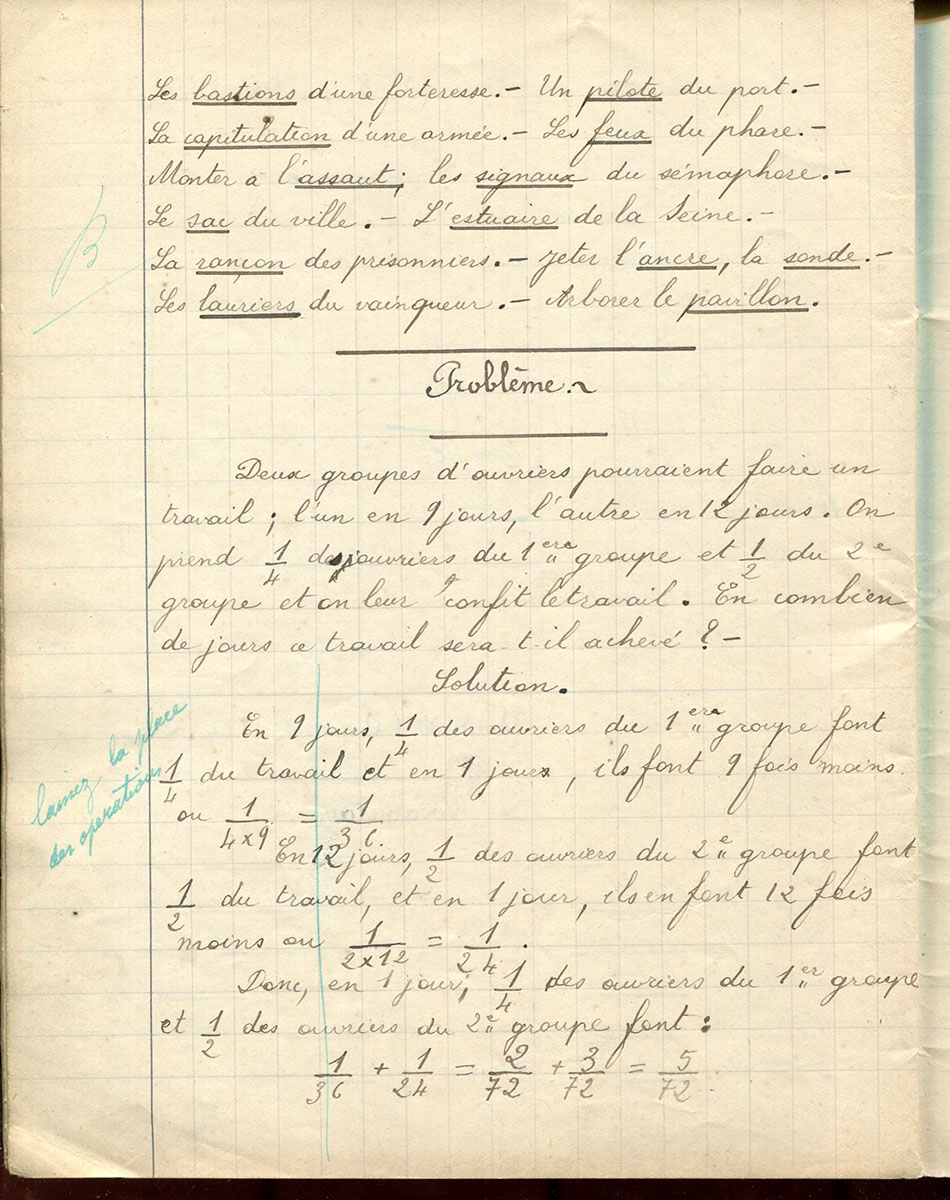 Les bastions d'une forteresse.- Un pilote du port.-
La capitulation d'une armée.- Les feux du phare.-
Monter à l'assaut; les signaux du sémaphore.-
Le sac du ville.- L'estuaire de la Seine.-
La rançon des prisonniers.- Jeter l'ancre, la sonde.-
Les lauriers du vainqueur.- Arborer le pavillon.
B
Problème.~
Deux groupes d'ouvriers pourraient faire un
travail; l'un en 9 jours, l'autre en 12 jours. On
prend 1/4 des ouvriers du 1ere groupe et 1/2 du 2e
groupe et on leur confit le travail. En combien
de jours ce travail sera-t-il achevé ?-
Solution.
laissez la place
des opérations
En 9 jours, 1/4 des ouvriers du 1ere groupe font
1/4 du travail et en 1 jour, ils font 9 fois moins
ou 1/4x9 = 1/36.
En 12 jours, 1/2 des ouvriers du 2e groupe font
1/2 du travail, et en 1 jour, ils en font 12 fois
moins ou 1/2x12 = 1/24.
Donc, en 1 jour, 1/4 des ouvriers du 1er groupe
et 1/2 des ouvriers du 2e groupe font:
1/36 + 1/24 = 2/72 + 3/72 = 5/72.